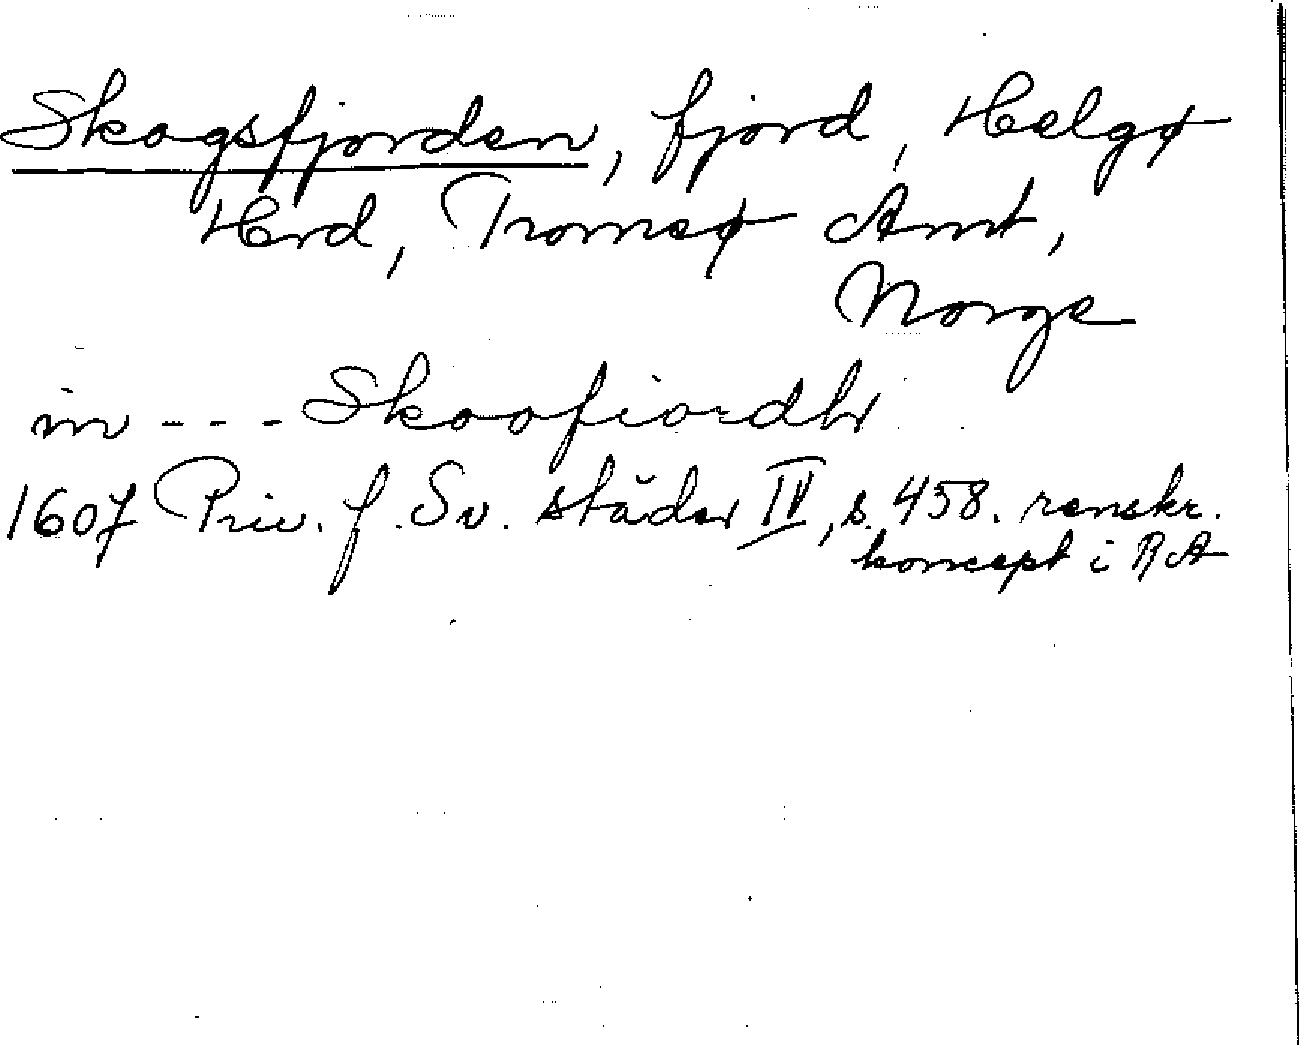 Skogsfjorden, fjord, Helgø
Hrd, Tromsø Amt,
Norge
in - - - Skoofiordh
1607 Priv. f. Sv. städer IV, s. 458. renskr.
koncept i RA